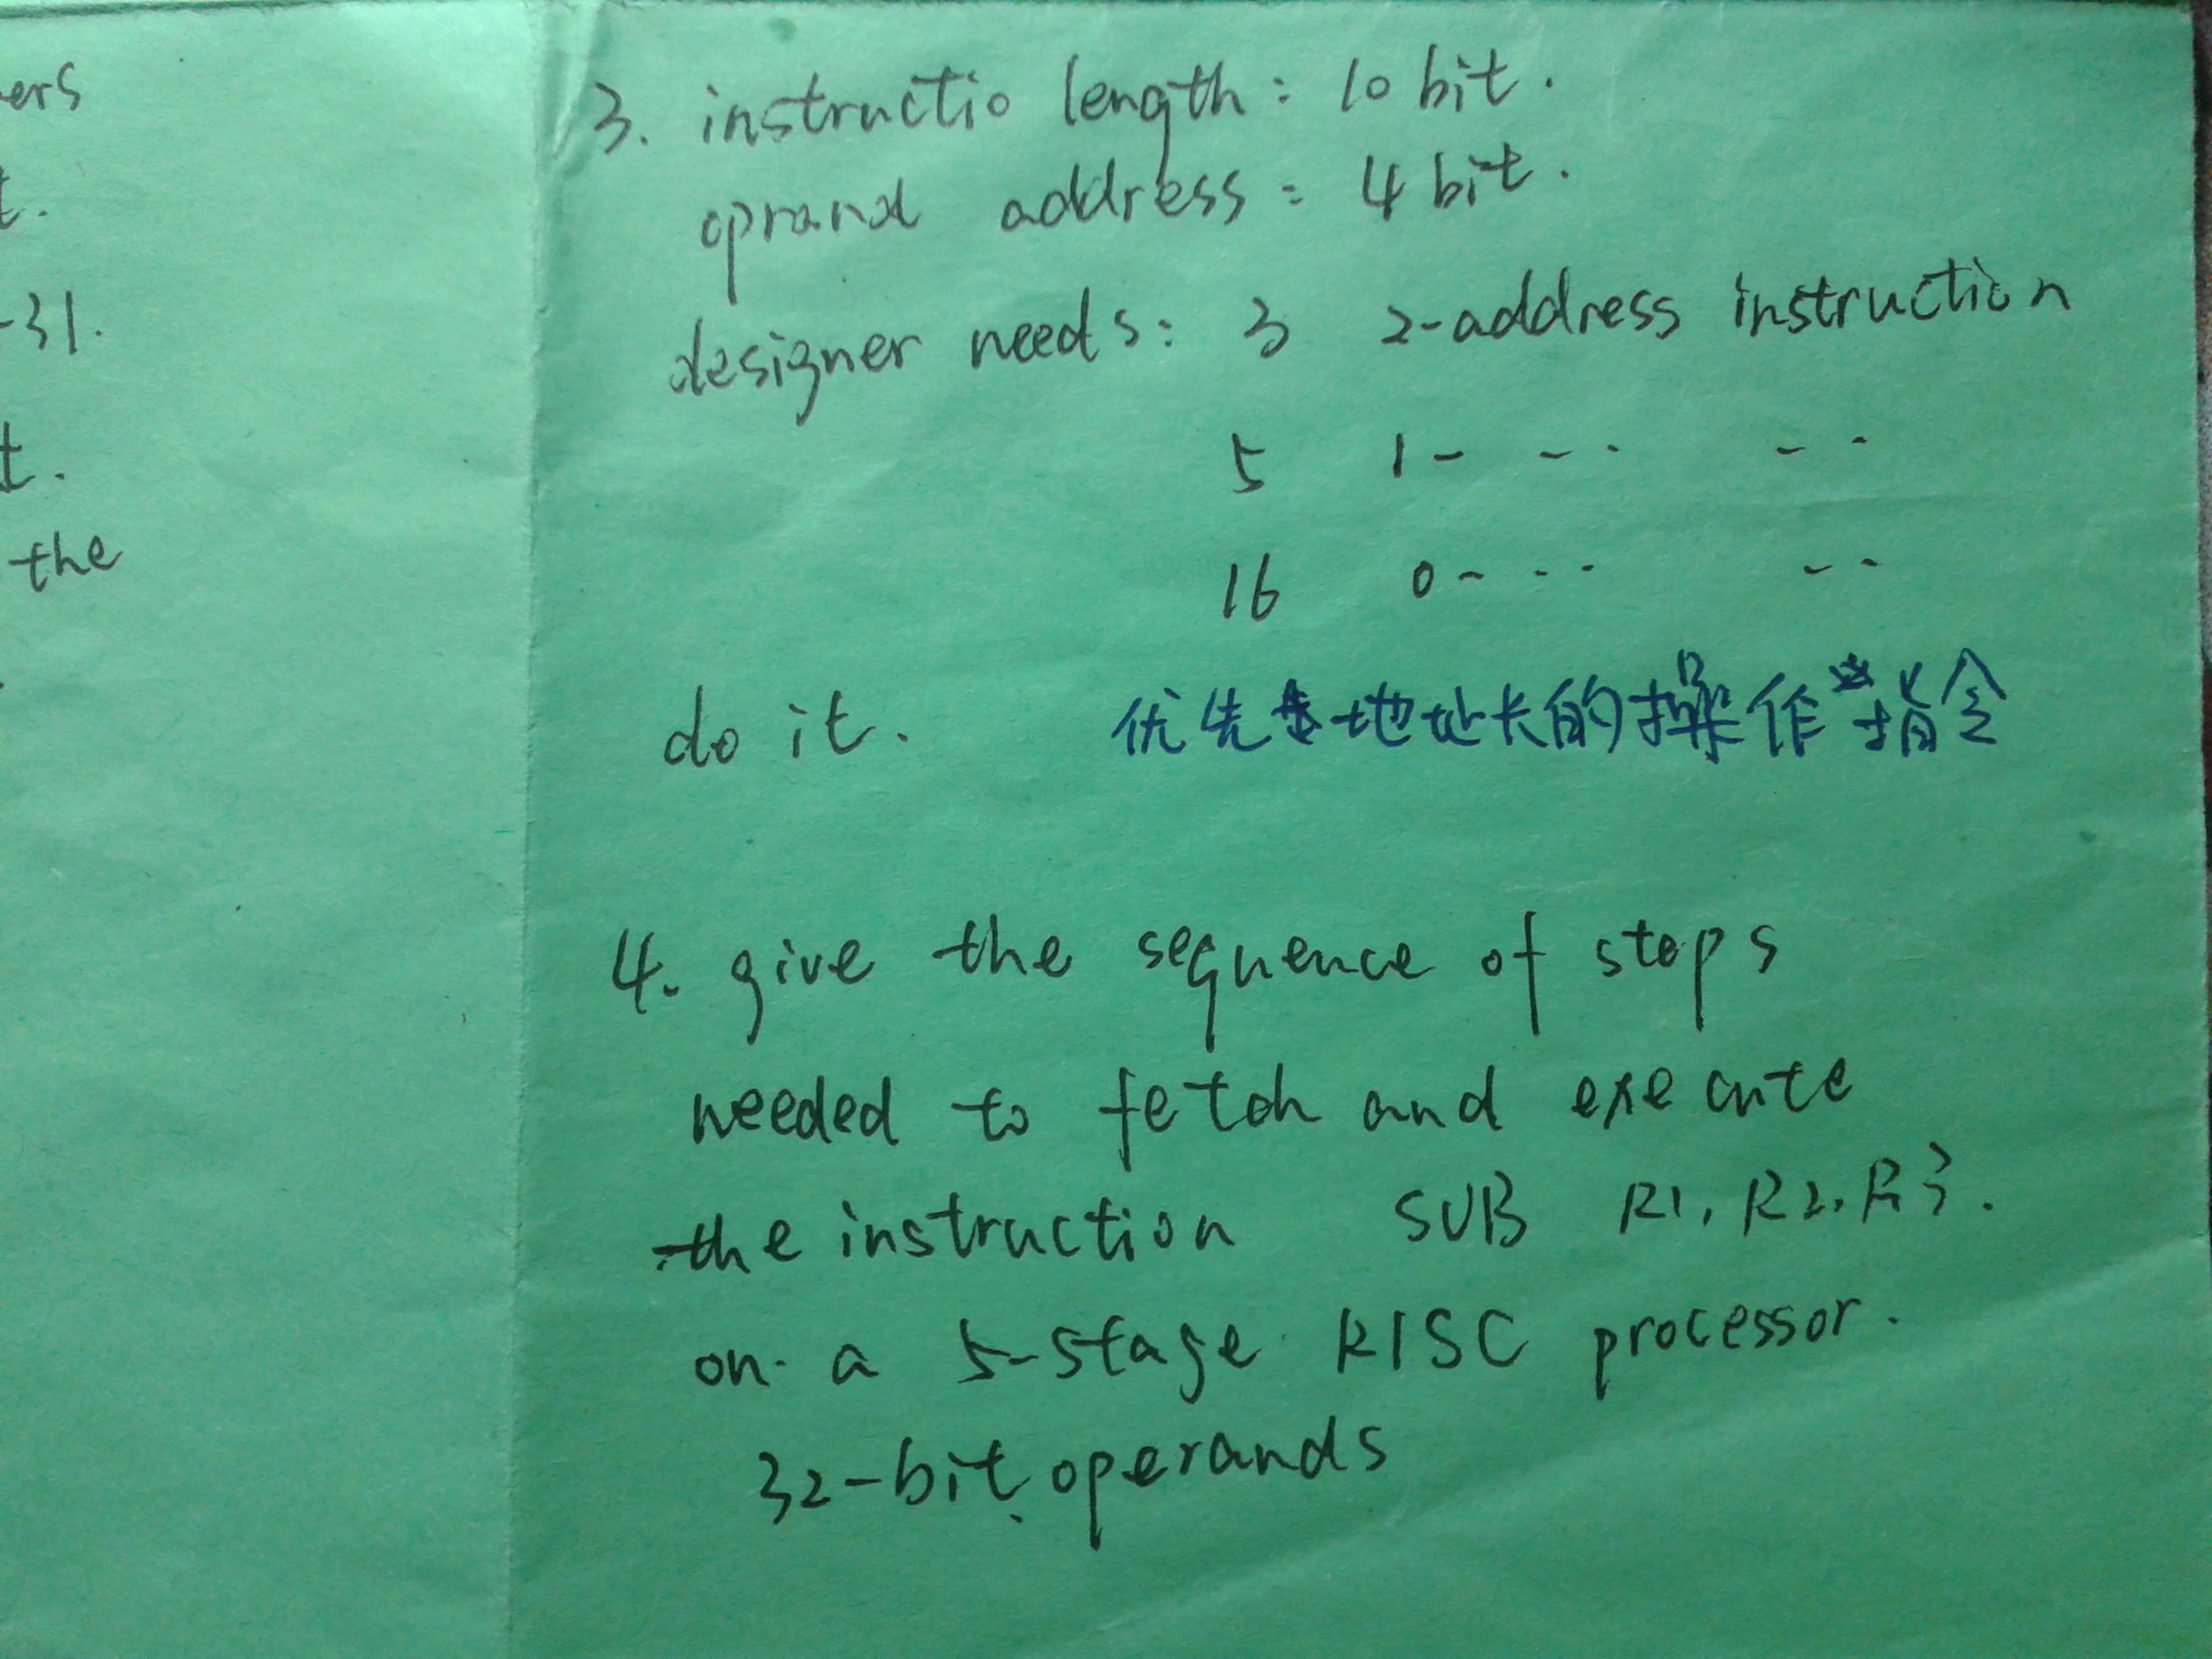 ers
t.
-31.
t.
the
3. instructio length: 10 bit.
oprand address: 4 bit.
designer needs: 3 2-address instruction
5 1- - - - -
16 0- - - - -
do it. 优先地址长的操作指令
4. give the sequence of steps
needed to fetch and execute
the instruction SUB R1, R2, R3.
on a 5-stage RISC processor.
32-bit operands